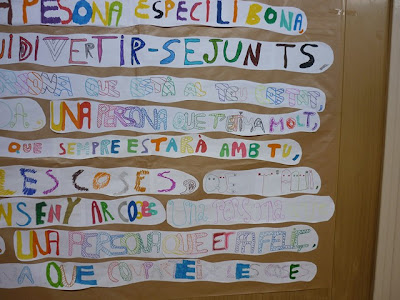 A PESONA ESPECIL I BONA
DIVERTIR-SE JUNTS
PERSONA QUE ESTÀ AL TEU COSTAT
A UNA PERSONA QUE T'ESTIMA MOLT,
QUE SEMPRE ESTARÀ AMB TU,
LES COSES,
ENSENYAR COSES UNA PERSONA
UNA PERSONA QUE ET FA FELIÇ
A QUE COMPARTEIX LES COSE